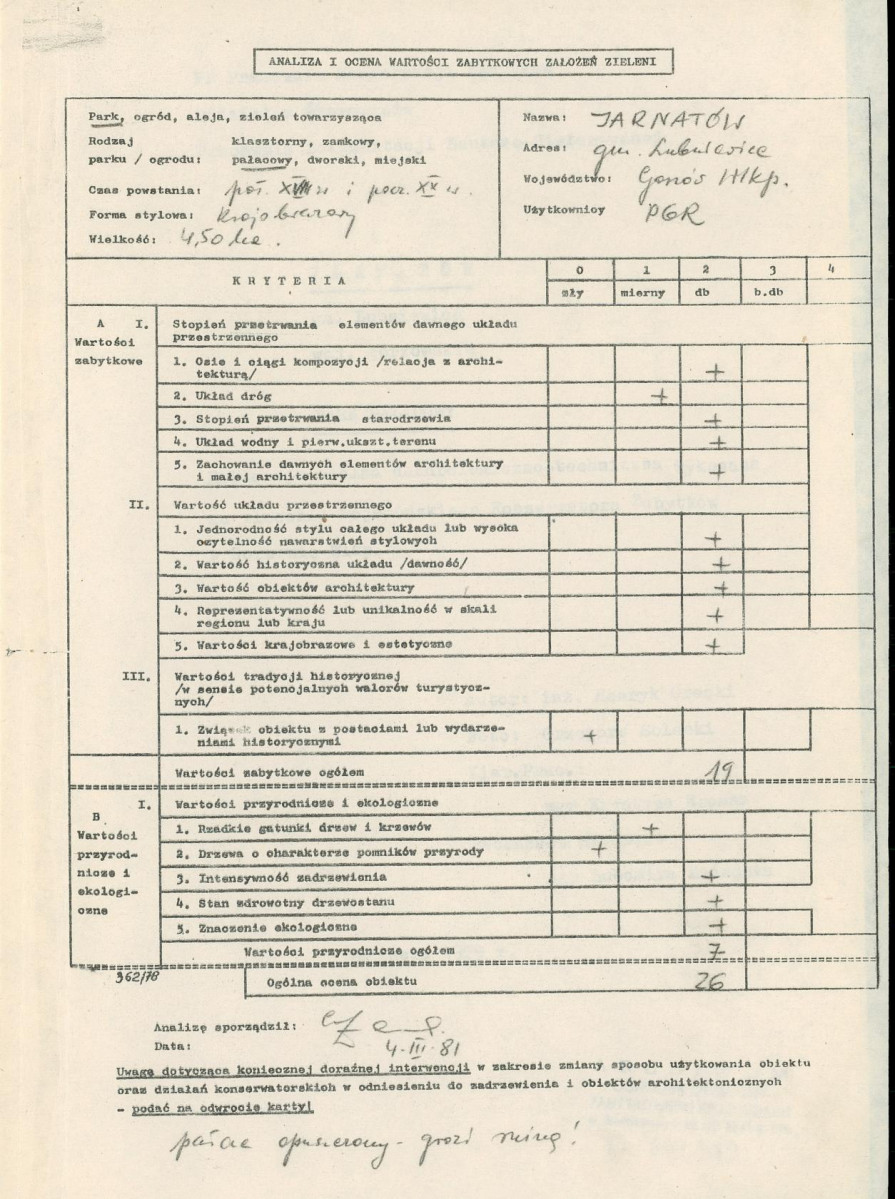 ANALIZA I OCENA WARTOŚCI ZABYTKOWYCH ZAŁOŻEŃ ZIELENI
Park, ogród, aleja, zieleń towarzysząca
Rodzaj parku / ogrodu: klasztorny, zamkowy, pałacowy, dworski, miejski
Czas powstania: poł. XVIII w i pocz. XX w.
Forma stylowa: krajobrazowy
Wielkość: 4,50 ha.
Nazwa: JARNATÓW
Adres: gm. Lubniewice
Województwo: Gorzów Wlkp.
Użytkownicy PGR
KRYTERIA
0 1 2 3 4
zły mierny db b.db
A I. Wartości zabytkowe
Stopień przetrwania elementów dawnego układu
przestrzennego
1. Osie i ciągi kompozycji /relacja z archi-
tekturą/ +
2. Układ dróg +
3. Stopień przetrwania starodrzewia +
4. Układ wodny i pierw.ukszt.terenu +
5. Zachowanie dawnych elementów architektury
i małej architektury +
II. Wartość układu przestrzennego
1. Jednorodność stylu całego układu lub wysoka
czytelność nawarstwień stylowych +
2. Wartość historyczna układu /dawność/ +
3. Wartość obiektów architektury +
4. Reprezentatywność lub unikalność w skali
regionu lub kraju +
5. Wartości krajobrazowe i estetyczne +
III. Wartości tradycji historycznej
/w sensie potencjalnych walorów turystycz-
nych/
1. Związek obiektu z postaciami lub wydarze-
niami historycznymi +
Wartości zabytkowe ogółem 19
B I. Wartości przyrod-
nicze i ekologi-
czne
Wartości przyrodnicze i ekologiczne
1. Rzadkie gatunki drzew i krzewów +
2. Drzewa o charakterze pomników przyrody +
3. Intensywność zadrzewienia +
4. Stan zdrowotny drzewostanu +
5. Znaczenie ekologiczne +
Wartości przyrodnicze ogółem 7
362/78
Ogólna ocena obiektu 26
Analizę sporządził:
Data: 4.III.81
Uwagę dotyczącą koniecznej doraźnej interwencji w zakresie zmiany sposobu użytkowania obiektu
oraz działań konserwatorskich w odniesieniu do zadrzewienia i obiektów architektonicznych
- podać na odwrocie karty!
pałac opuszczony - grozi ruiną!